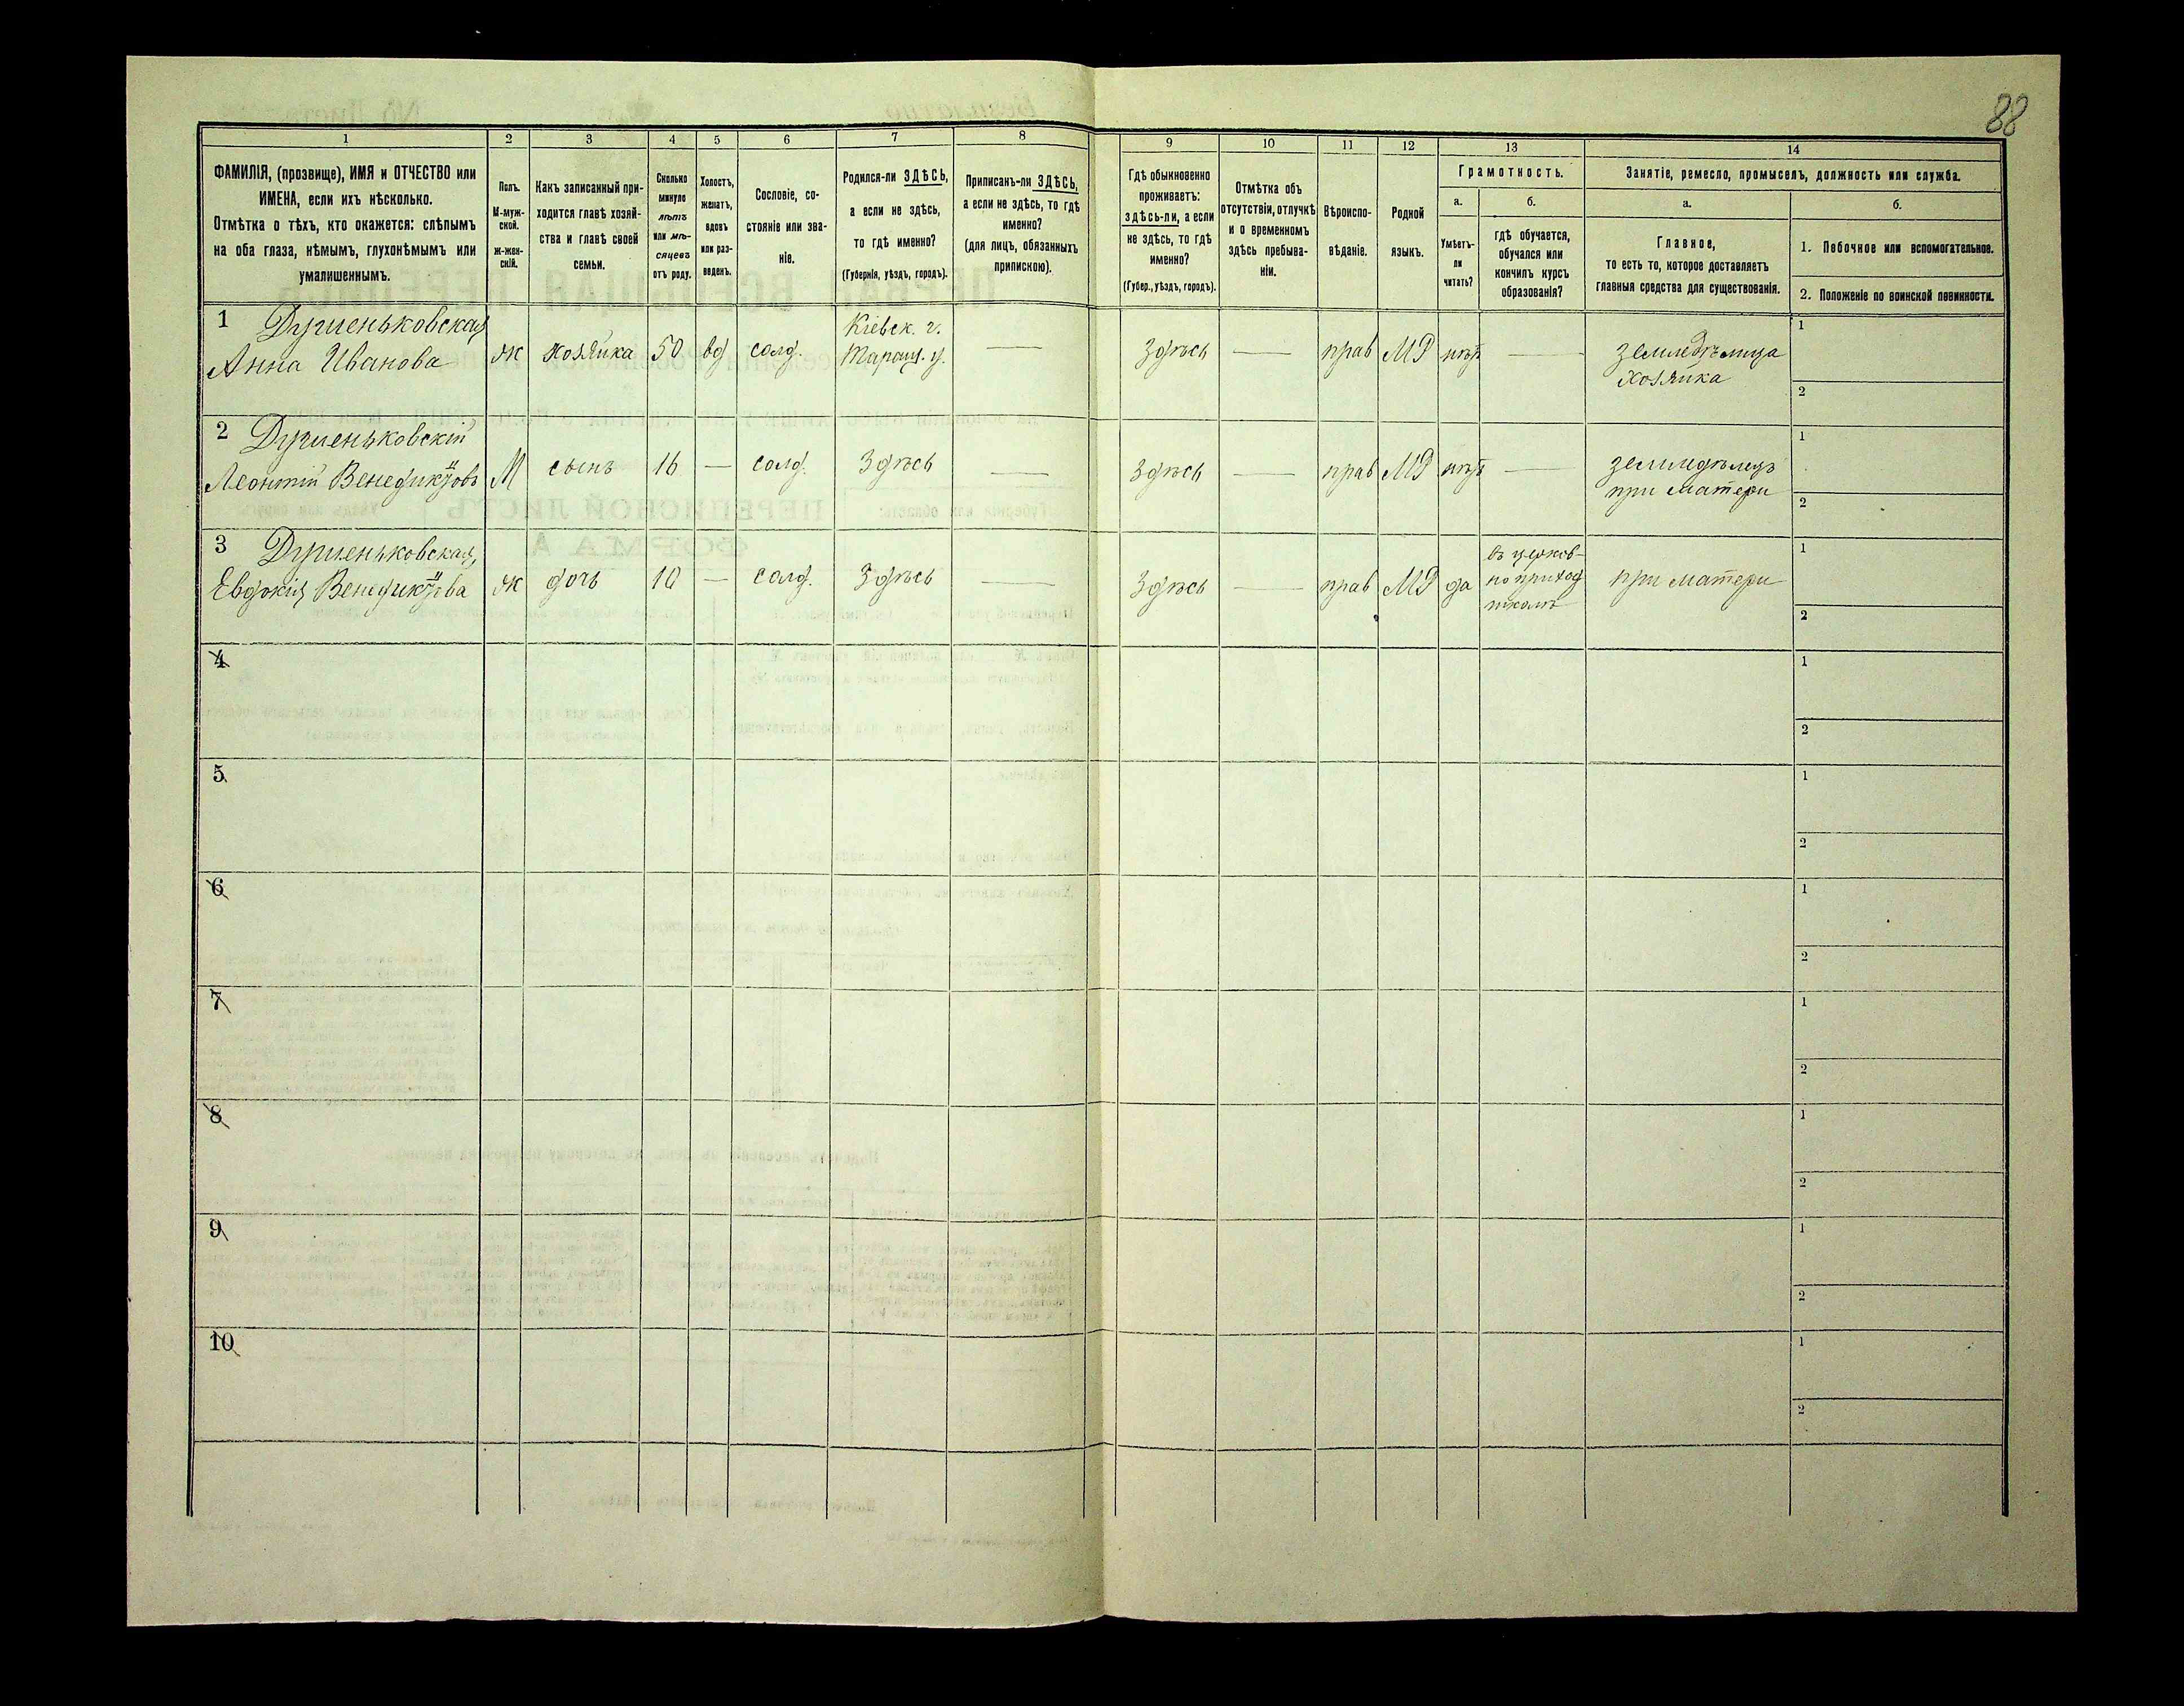 88
1 2 3 4 5 6 7 8 9 10 11 12 13 14
ФАМИЛІЯ, (прозвище), ИМЯ и ОТЧЕСТВО или
ИМЕНА, если ихъ нѣсколько.
Отмѣтка о тѣхъ, кто окажется: слѣпымъ
на оба глаза, нѣмымъ, глухонѣмымъ или
умалишеннымъ.
Полъ.
М-муж-
ской.
ж-жен-
скій.
Какъ записанный при-
ходится главѣ хозяй-
ства и главѣ своей
семьи.
Сколько
минуло
лѣтъ
или мѣ-
сяцевъ
отъ роду.
Холостъ,
женатъ,
вдовъ
или раз-
веденъ.
Сословіе, со-
стояніе или зва-
ніе.
Родился-ли ЗДѢСЬ,
а если не здѣсь,
то гдѣ именно?
(Губернія, уѣздъ, городъ).
Приписанъ-ли ЗДѢСЬ,
а если не здѣсь, то гдѣ
именно?
(для лицъ, обязанныхъ
припискою).
Гдѣ обыкновенно
проживаетъ:
здѣсь-ли, а если
не здѣсь, то гдѣ
именно?
(Губер., уѣздъ, городъ).
Отмѣтка объ
отсутствіи, отлучкѣ
и о временномъ
здѣсь пребыва-
ніи.
Вѣроиспо-
вѣданіе.
Родной
языкъ.
Грамотность.
а.
Умѣетъ-
ли
читать?
б.
гдѣ обучается,
обучался или
кончилъ курсъ
образованія?
Занятіе, ремесло, промыселъ, должность или служба.
а.
Главное,
то есть то, которое доставляетъ
главныя средства для существованія.
б.
1. Побочное или вспомогательное.
2. Положеніе по воинской повинности.
1 Душеньковская
Анна Иванова
ж
хозяйка
50
вд
солд.
Кіевск. г.
Таращ. у.
—
Здѣсь
—
прав
МР
нѣт
—
земледѣлица
хозяйка
1
2
2 Душеньковскій
Леонтій Венедиктовъ
М
сынъ
16
—
солд.
Здѣсь
—
Здѣсь
—
прав
МР
нѣт
—
земледѣлецъ
при матери
1
2
3 Душеньковская
Евдокія Венедиктова
ж
дочь
10
—
солд.
Здѣсь
—
Здѣсь
—
прав
МР
да
въ церков-
но приход
школѣ
при матери
1
2
4
1
2
5
1
2
6
1
2
7
1
2
8
1
2
9
1
2
10
1
2